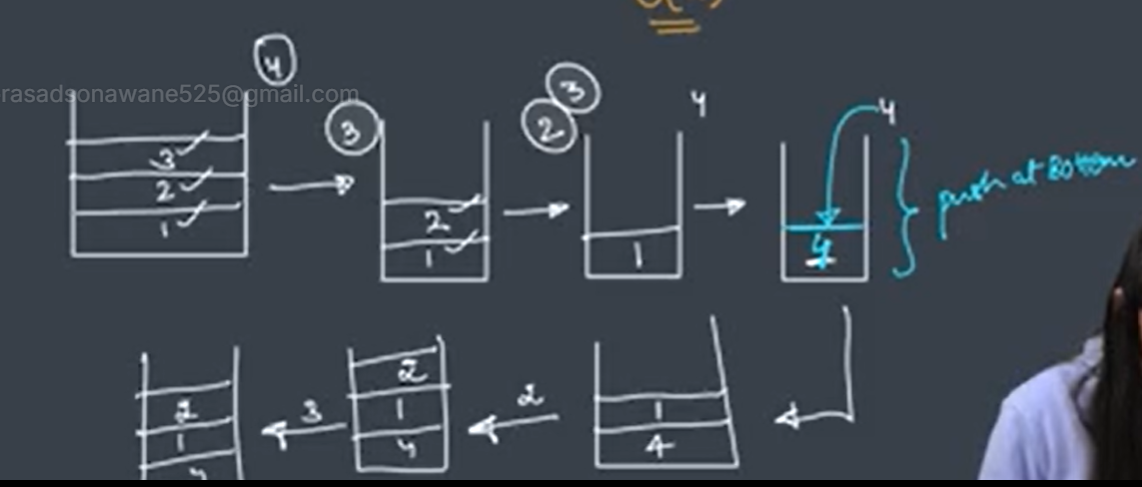 4
rasadsonawane525@gmail.com
3
2
1
3
2
1
3
2
4
1
4
4
push at Bottom
1
4
2
2
1
4
3
2
1